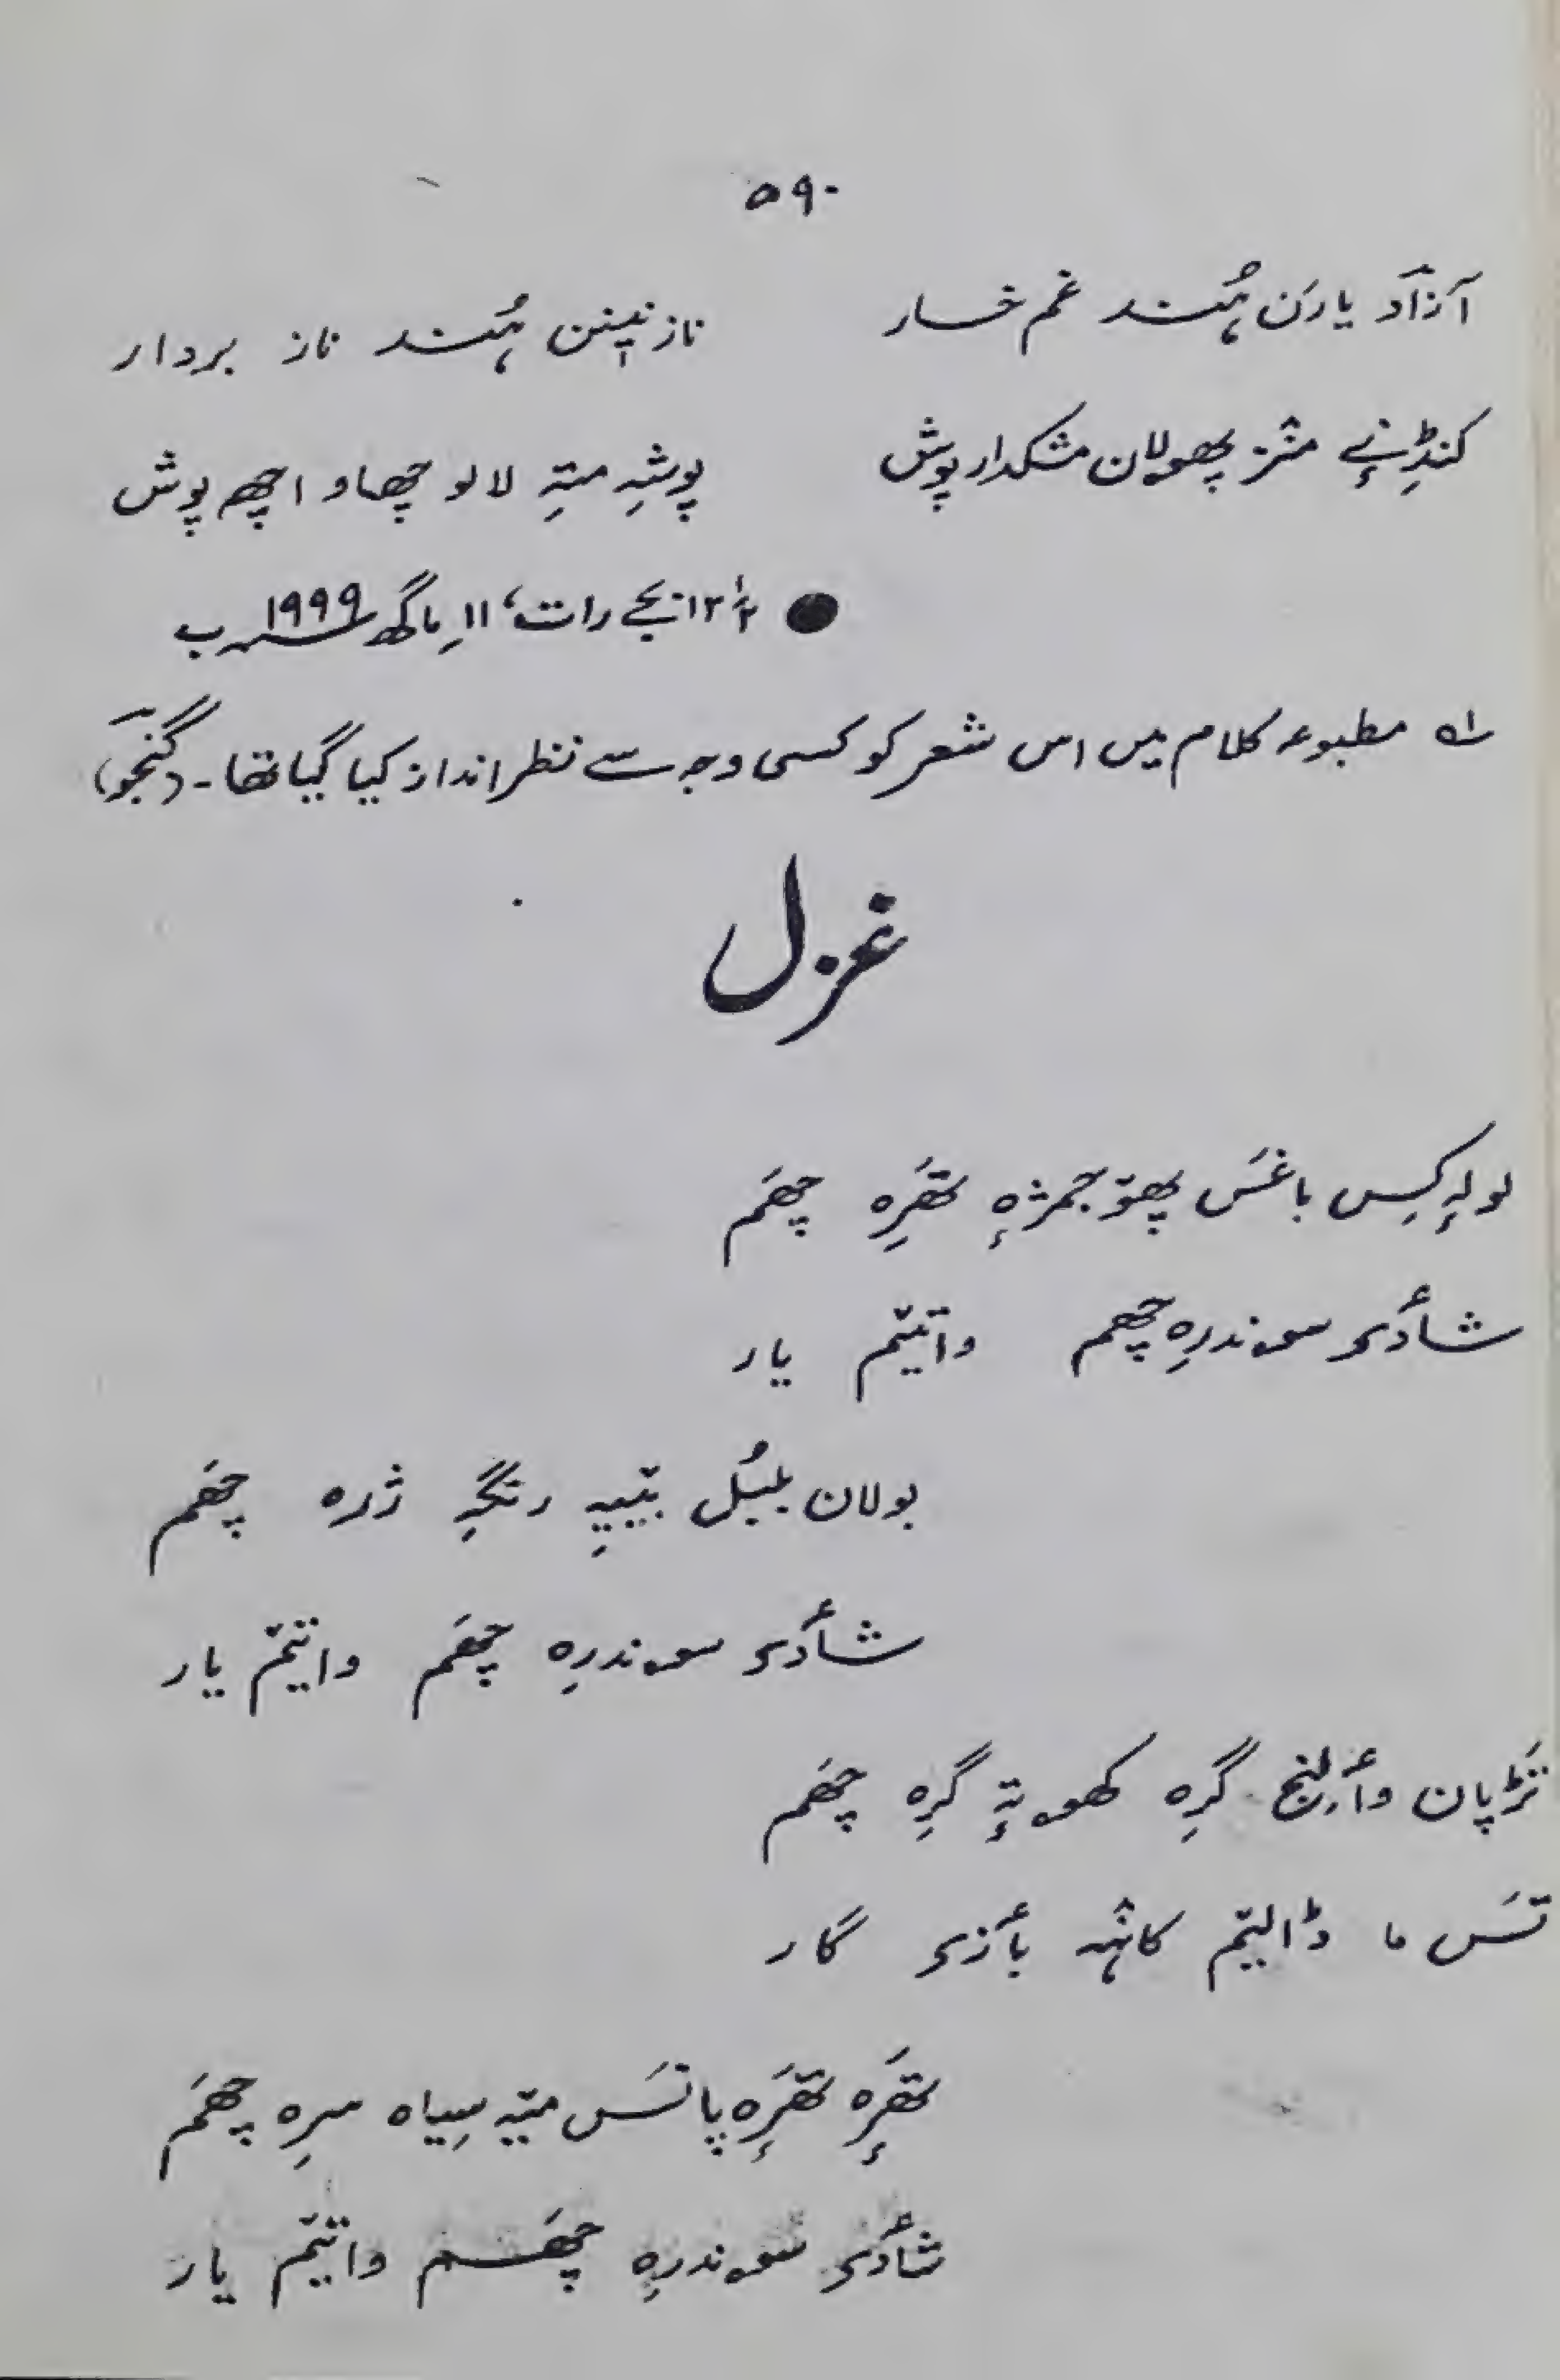 ۵۹۰
آزاد یارَن ہُند غم خسار نازنیٖنن ہُند ناز بردار
کنڈِنۍ منٛز پھولان مشکدار پوش پوشہِ متہِ لالو چھاو اچھ پوش
● ۱۲½ بجے رات، ۱۱؍ماگھ ۱۹۹۹ ب
؂۱ مطبوعہ کلام میں اس شعر کو کسی وجہ سے نظر انداز کیا گیا تھا۔ (گنجو)
غزل
لولہٕ کِس باغَس پھۆجمژہٕ تھَرِہ چھَم
شٲدۍ سۄندرِہ چھم واتیٚم یار
بولان بلبُل بیٚیہِ رنگہِ ژرہ چھَم
شٲدۍ سۄندرِہ چھَم واتیٚم یار
تَڑپان وٲلِنج گرِہ کھۄتہٕ گرِہ چھَم
تَس ما ڈالیٚم کانٛہہ بٲزۍ گار
تھَرٕہ تھَرٕہ پانَس میٚہ سِیاہ سرِہ چھَم
شٲدۍ سۄندرِہ چھَم واتیٚم یار